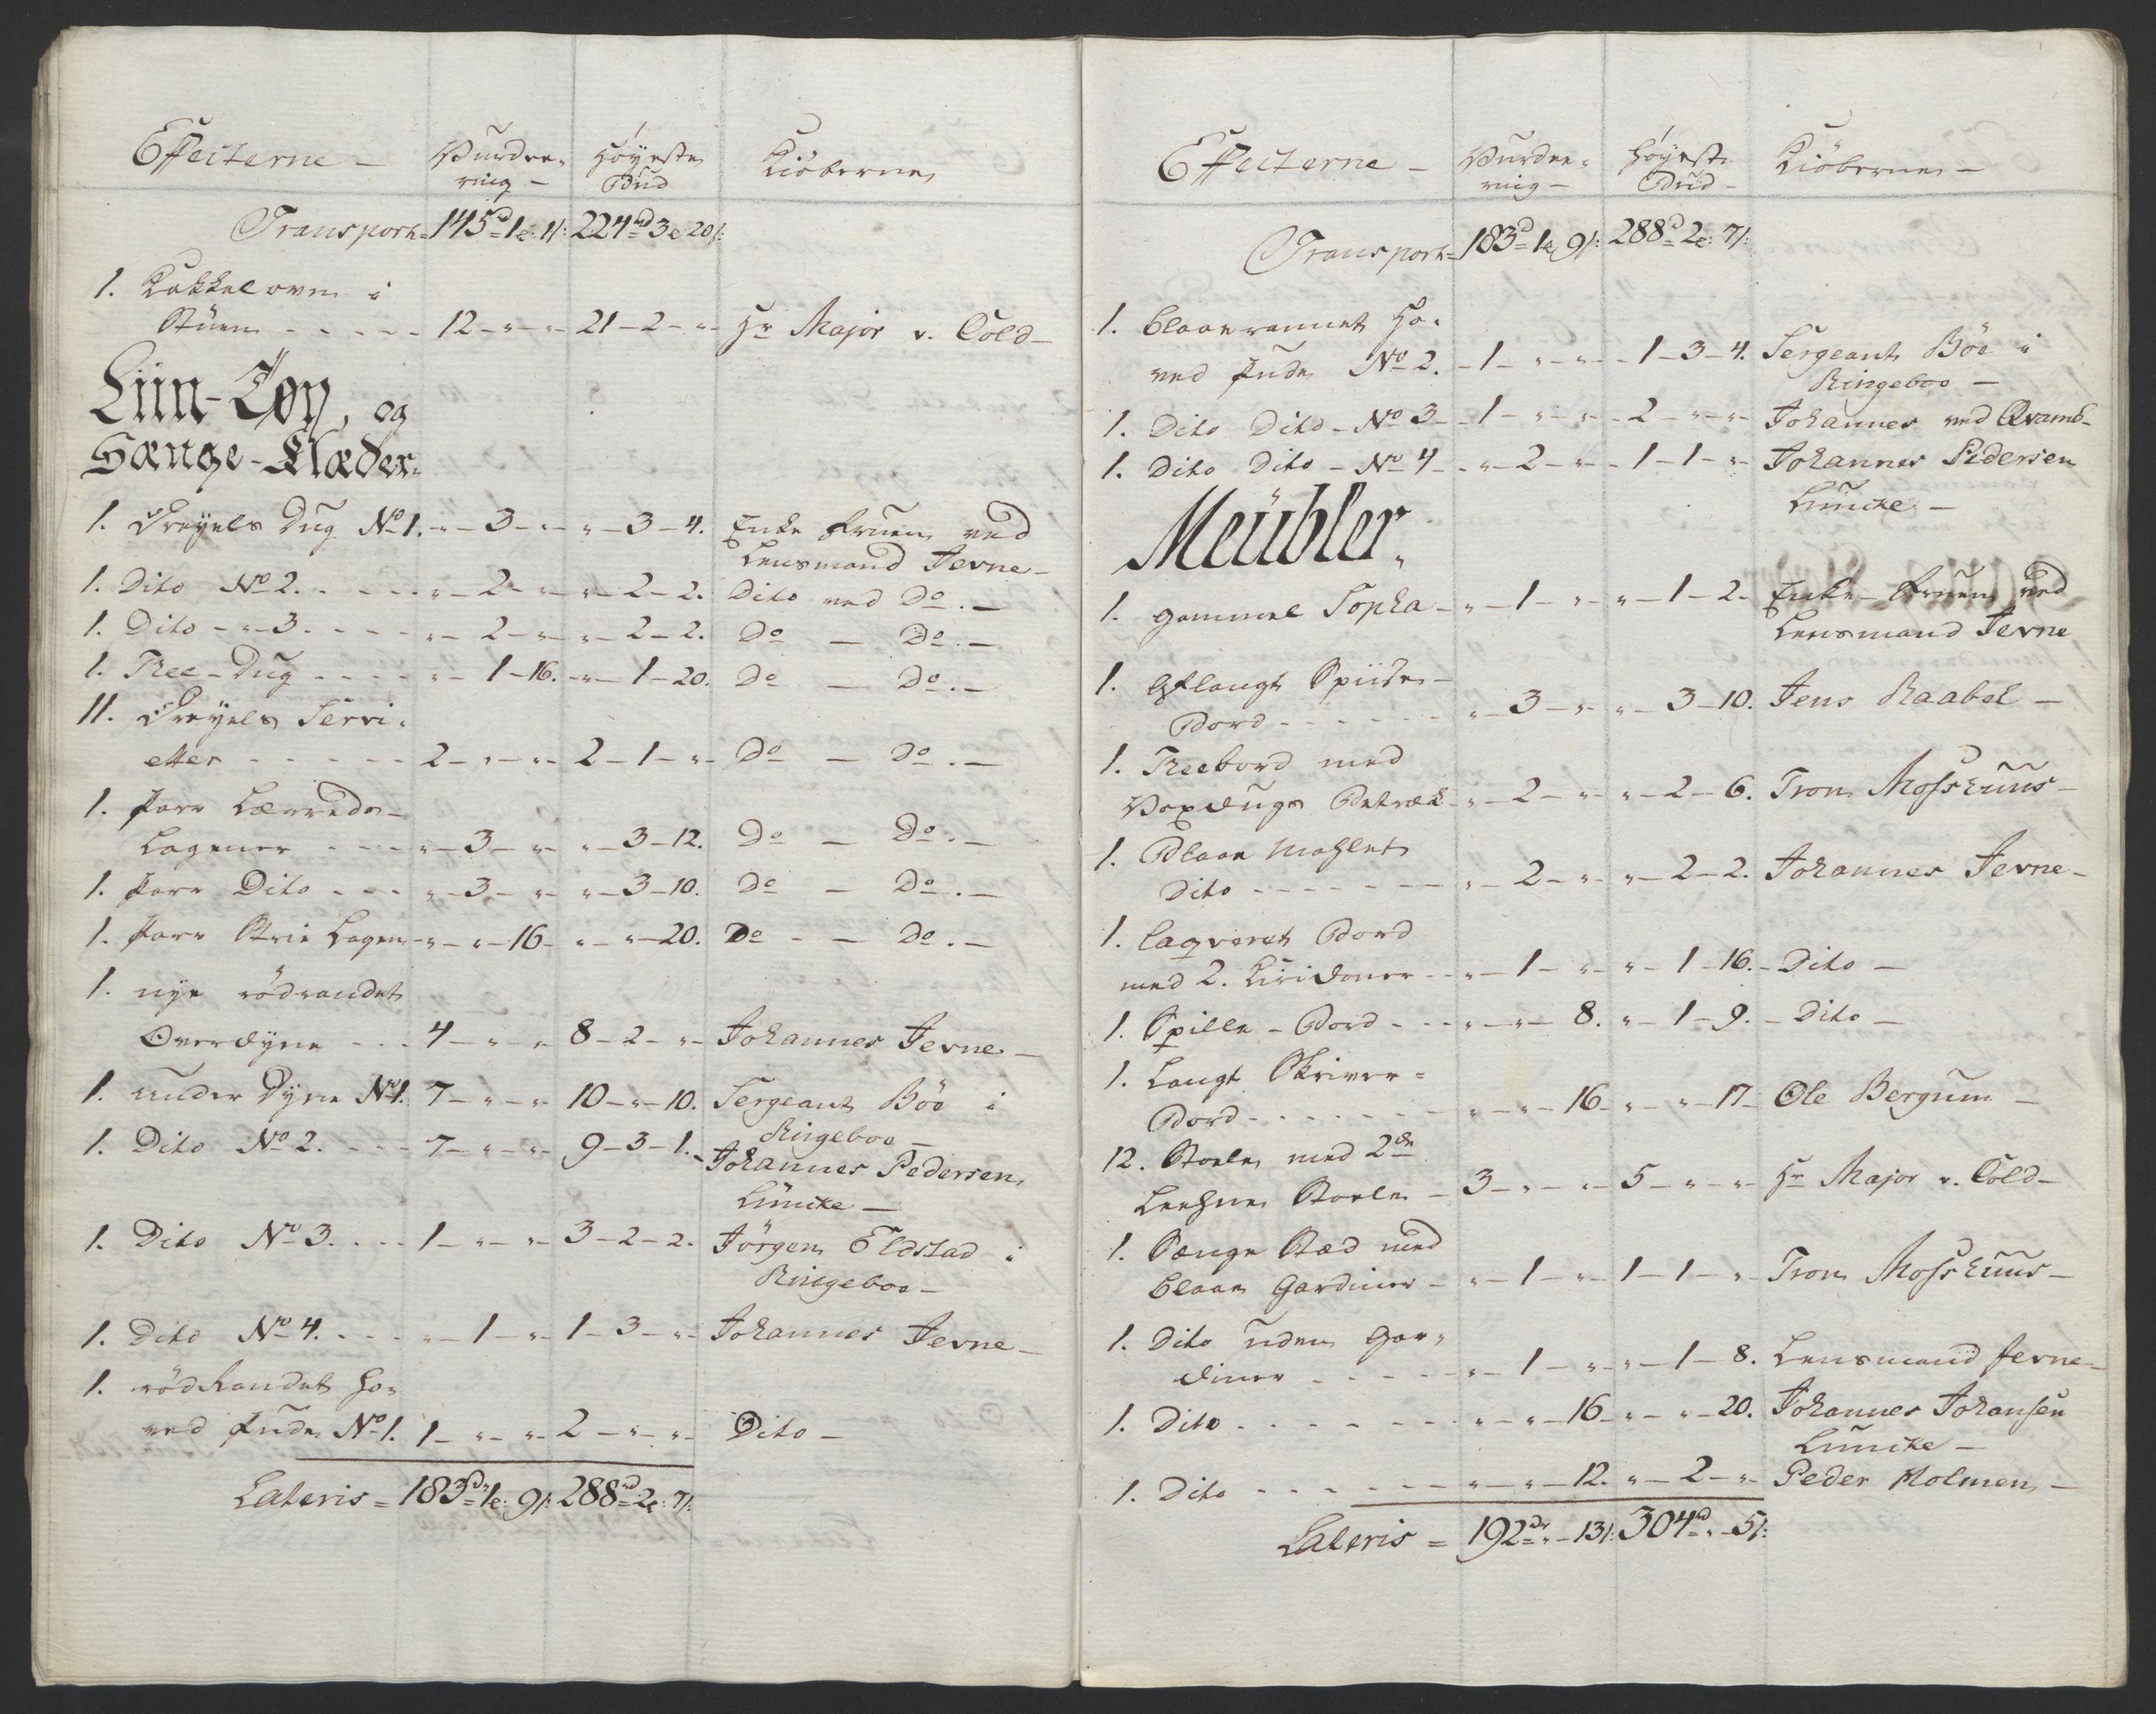 Effecterne – Vurdee- Høyeste Kiöberne
ring – Bud
Transport = 145d 1e: 1/: 224rd 3e 20/:
1. Kakkelovn i
Stüen - - - - - 12 - „ - „ - 21 - 2 - „ - Hr Major v. Cold -
Liin-Tøy, og
Sænge-Klæder.
1. Dreyels Dug No 1. - „ - 3 - „ - „ - 3 - 4. Enke Fruen ved
Lensmand Jevne -
1. Dito No 2. - - - - „ - 2 - „ - „ - 2 - 2. Dito ved Do. -
1. Dito - „ - 3. - - - - „ - 2 - „ - „ - 2 - 2. Do - Do. -
1. Tree-Dug - - - - „ - 1 - 16. - „ - 1 - 20. Do - Do. -
11. Dreyels Servi-
etter - - - - - 2 - „ - „ - 2 - 1 - „ - Do - Do. -
1. Parr Lærreds-
Lagener - - - „ - 3 - „ - „ - 3 - 12. Do - Do. -
1. Parr Dito - - - „ - 3 - „ - „ - 3 - 10. Do - Do. -
1. Parr Strie Lagen - „ - „ - 16 - „ - „ - 20. Do - Do. -
1. nye rödrandet
Overdyne - - - 4 - „ - „ 8 - 2 - „ - Johannes Jevne -
1. under Dyne No 1. 7 - „ - „ - 10 - „ - 10. Sergeant Böe i
Ringeboe -
1. Dito No 2. - - - 7 - „ - „ - 9 - 3 - 1. - Johannes Pedersen
Lüncke -
1. Dito No 3. - - - 1 - „ - „ - 3 - 2 - 2. Jörgen Eldstad i
Ringeboe -
1. Dito No 4. - - - „ - 1 - „ - 1 - 3 - „ - Johannes Jevne -
1. rödRandet Ho-
ved Pude No 1. 1 - „ - „ - 2 - „ - „ - Dito -
Lateris = 183rd 1e: 9/: 288rd 2e: 7/:
Effecterne – Vurdee- Høyeste Kiöberne -
ring – Bud -
Transport = 183d 1e 9/: 288d 2e: 7/:
1. blaaerannet Ho-
ved Pude No 2. - 1 - „ - „ - 1 - 3 - 4. Sergeant Böe i
Ringeboe -
1. Dito Dito - No 3 - - 1 - „ - „ - 2 - „ - „ - Johannes ved Qvamb-
1. Dito Dito - No 4 - - „ - 2 - „ - 1 - 1 - „ - Johannes Pedersen
Lüncke -
Meübler.
1. gammel Sopha - „ - 1 - „ - „ - 1 - 2. Enke-Fruen ved
Lensmand Jevne
1. Aflangt Spiise-
Bord - - - - - - „ - 3 - „ - „ - 3 - 10. Jens Raabel -
1. Treebord med
Voxdugs Betræk - „ - 2 - „ - „ - 2 - 6. Tron Moshuus -
1. Blaae Mahlet
Dito - - - - - - „ - 2 - „ - „ - 2 - 2. Johannes Jevne -
1. laqveret Bord
med 2. Giridoner - - „ - 1 - „ - „ - 1 - 16. - Dito -
1. Spille-Bord - - - „ - „ - 8. „ - 1 - 9. - Dito -
1. Langt Skriver=
Bord - - - - - - - „ - „ - 16 - „ - „ - 17 - Ole Bergum -
12. Stoele med 2de
Leehne Stoele - 3 - „ - „ - 5 - „ - „ - Hr Major v. Cold -
1. Sænge Stæd med
blaae Gardiner - „ - 1 - „ - 1 - 1 - „ - Tron Moshuus -
1. Dito uden Gar-
diner - - - - - „ - 1 - „ - „ - 1 - 8. Lensmand Jevne -
1. Dito - - - - - - - „ - „ - 16 - „ - „ - 20. Johannes Johansen
Lüncke -
1. Dito - - - - - - „ - „ - 12. „ - 2 - „ - Peder Holmen -
Lateris = 192d „ - 13/: 304d „ - 5/: